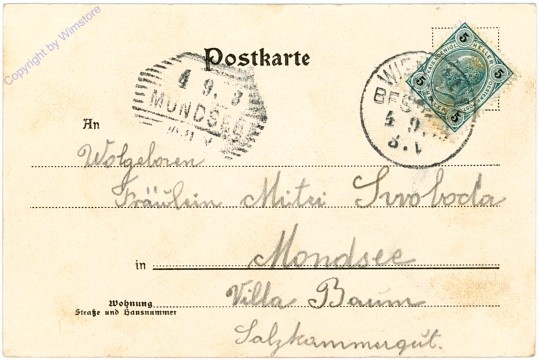 Copyright by Wimstore
Postkarte
4 9. 3
MONDSEE
5 5 5 5
WIEN
4 9.
8·V
An
Wolgeboren
Fräulein Mitzi Svoboda
in Mondsee
Wohnung
Straße und Hausnummer
Villa Baum
Salzkammergut.